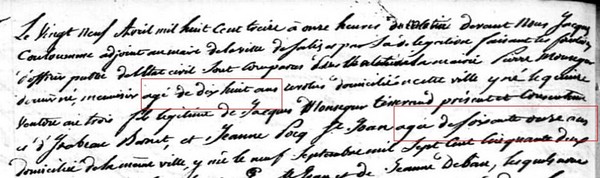 Le vingt neuf Avril mil huit Cent treize à onze heures du matin devant Nous Jacques
Coulomme adjoint au maire de la ville de Salis et par Sa délégation faisant les fonctions
d'officier public de l'état civil Sont comparus dans la maison de la mairie Pierre Monsegur
menuisier agé de dix huit ans domicilié en cette ville y né le quinze
ventose an trois fils légitime de Jacques Monsegur présent et consentant
et d' Barnet, et Jeanne St Jean agée de soixante onze ans
domiciliée de la même ville, y née le neuf Septembre mil Sept Cent Cinquante deux
St Jean et de Jeanne Debau, lesquels nous